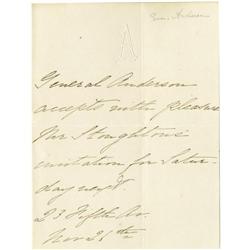 Gen. Anderson
A
General Anderson
accepts with pleasure
Mr Stoughton's
invitation for Satur-
day next
23 Fifth Av.
Nov 21th